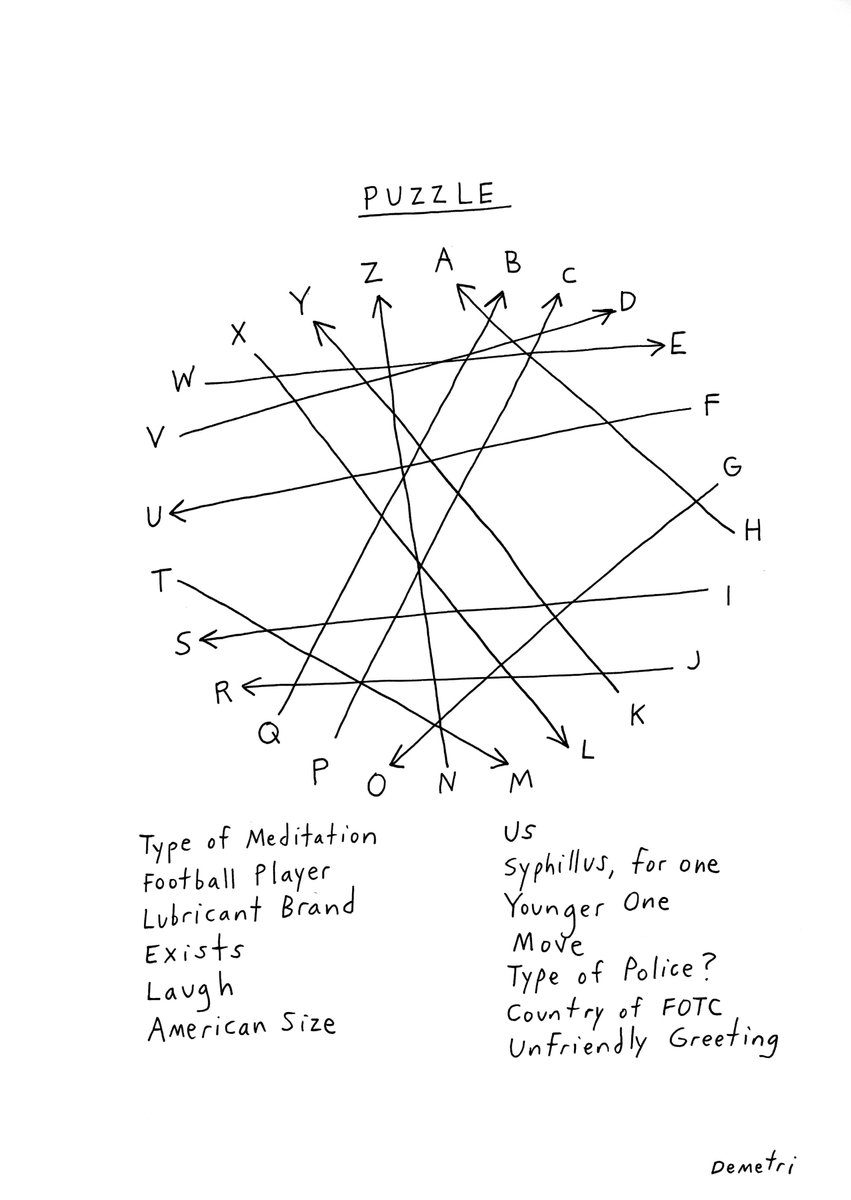 PUZZLE
A
B
C
D
E
F
G
H
I
J
K
L
M
N
O
P
Q
R
S
T
U
V
W
X
Y
Z
Type of Meditation
Football Player
Lubricant Brand
Exists
Laugh
American Size
US
Syphillus, for one
Younger One
Move
Type of Police?
Country of FOTC
Unfriendly Greeting
Demetri